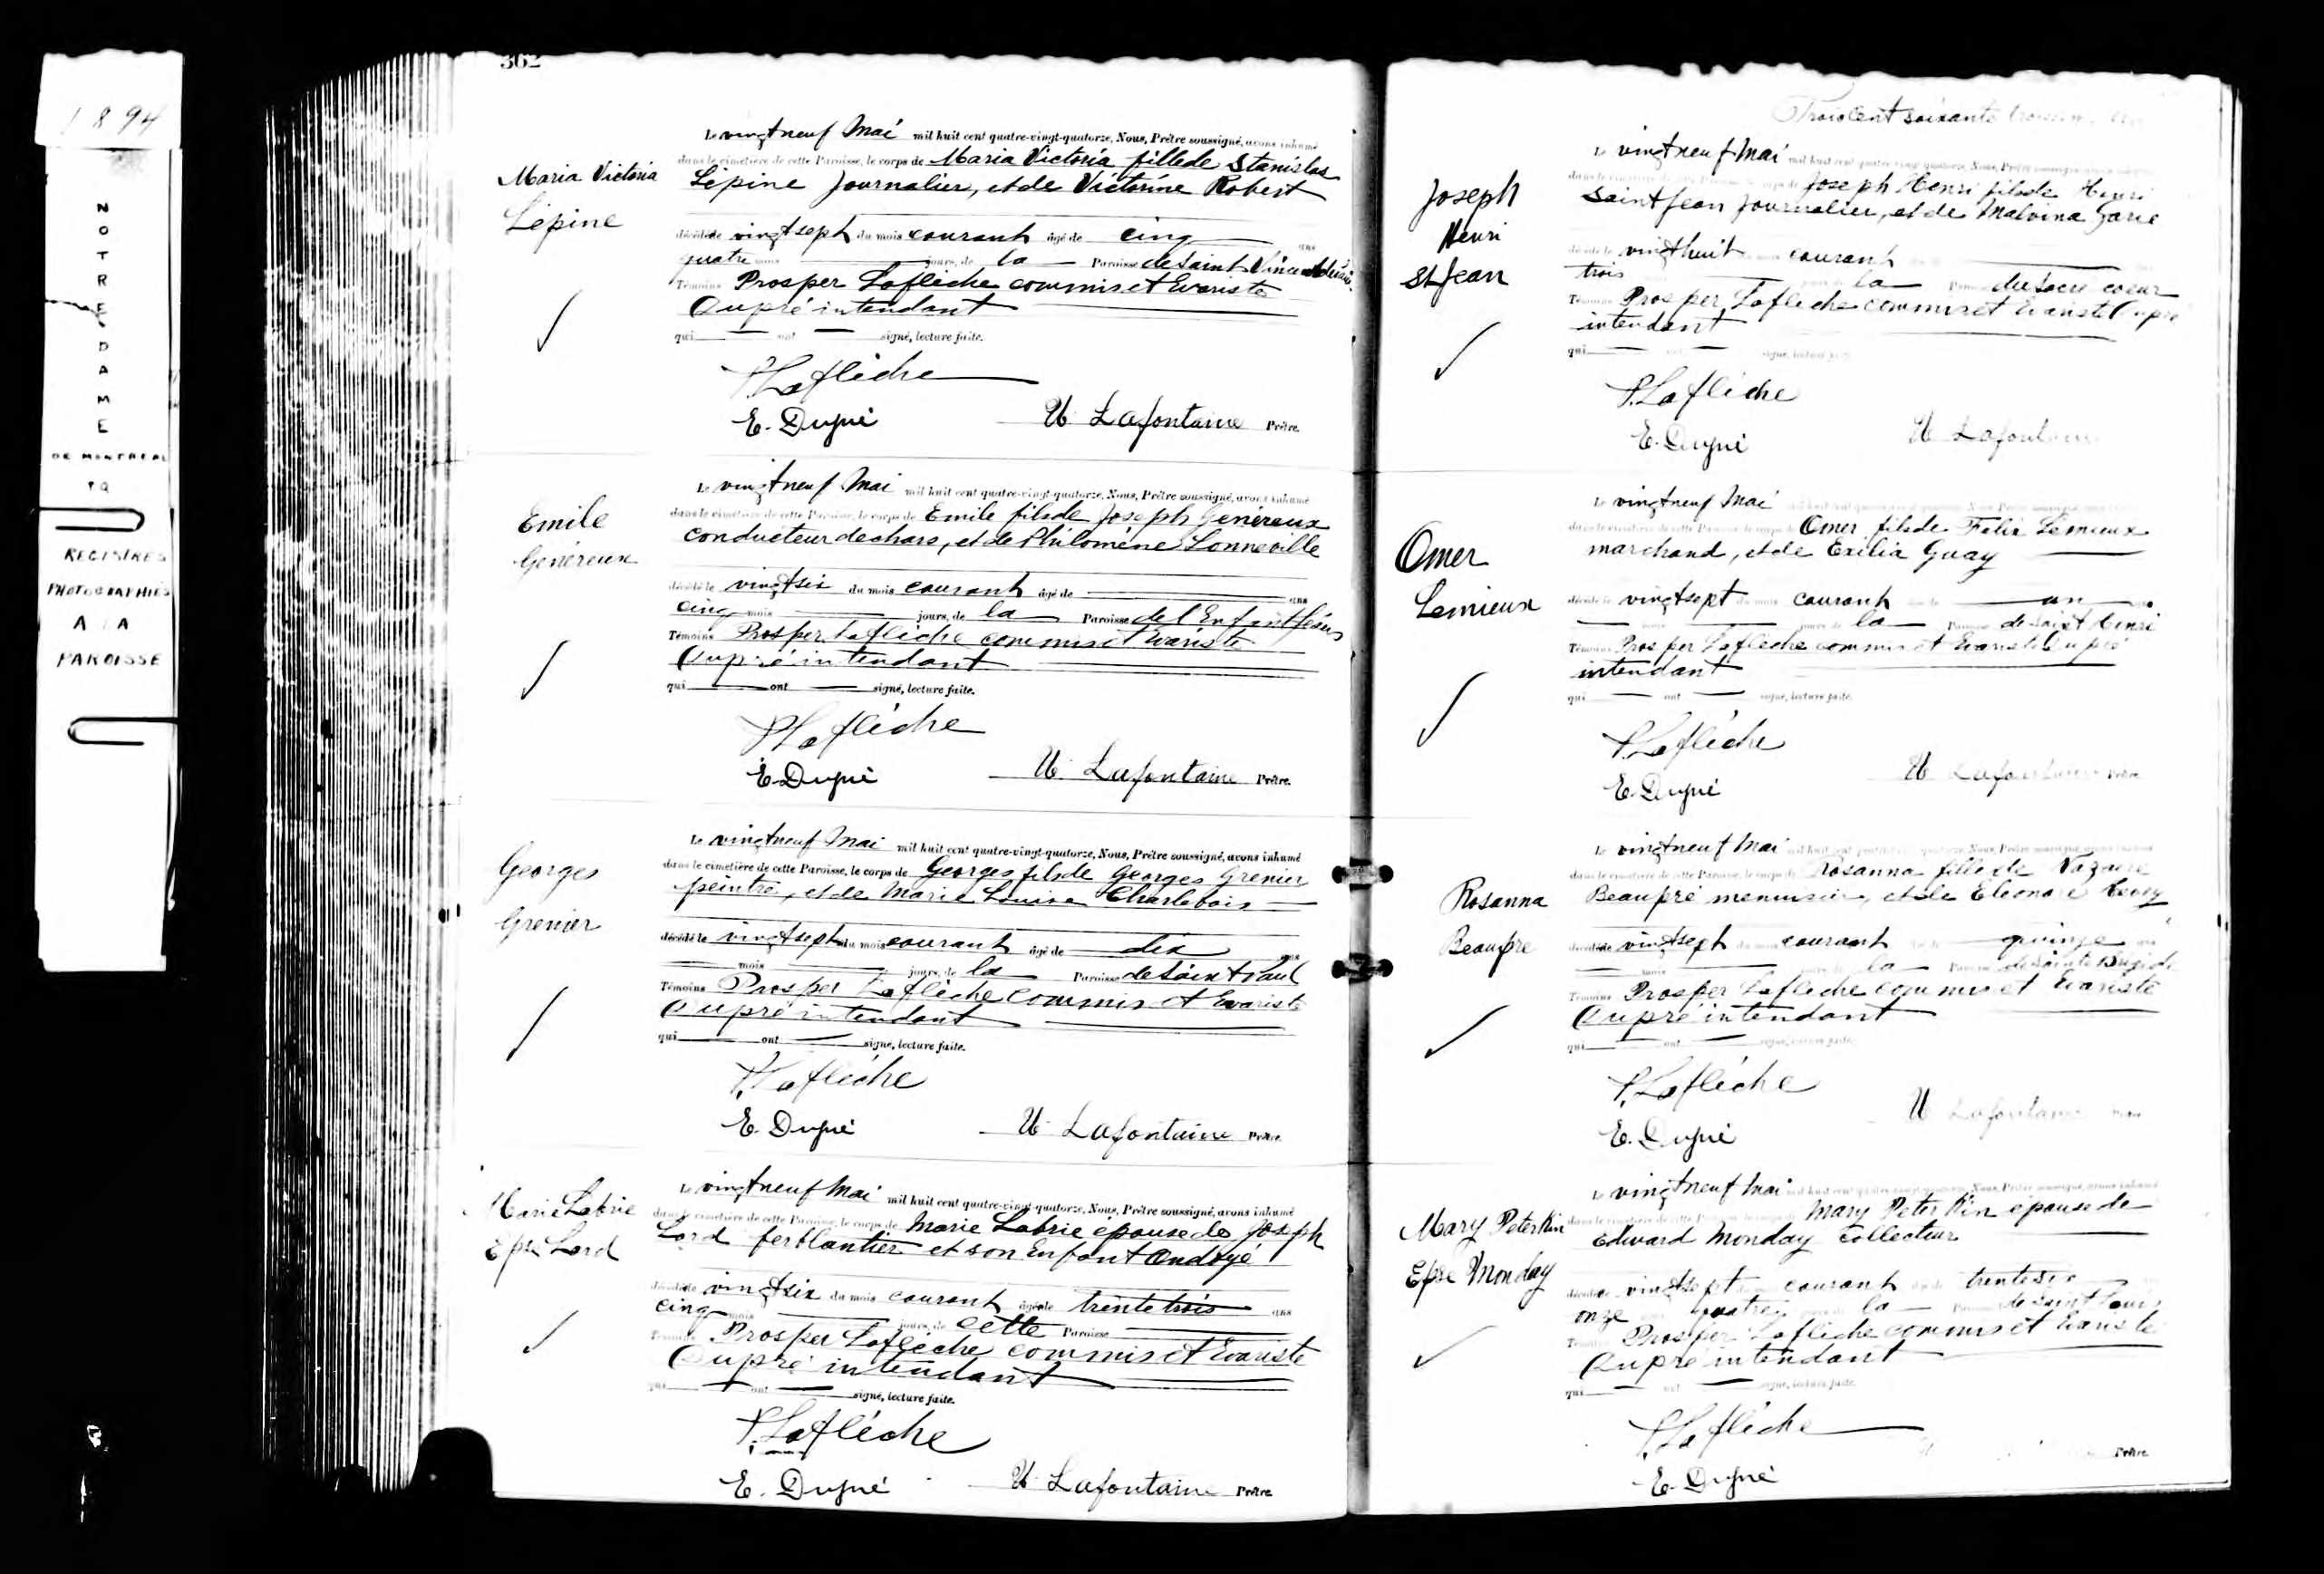 1894
NOTRE DAME
DE MONTREAL
REGISTRES
PHOTOGRAPHIES
A LA
PAROISSE
362
Maria Victoria
Lépine
Le vingt neuf Mai mil huit cent quatre-vingt-quatorze, Nous, Prêtre soussigné, avons inhumé
dans le cimetière de cette Paroisse, le corps de Maria Victoria fille de Stanislas
Lépine Journalier, et de Victorine Robert
décédée vingt sept du mois courant âgé de cinq ans
quatre mois jours, de la Paroisse de Saint Vincent
Témoins Prosper Laflèche commis et Evariste
Dupré intendant
qui ont signé, lecture faite.
P. Laflèche
E. Dupré U. Lafontaine Prêtre.
Emile
Généreux
Le vingt neuf Mai mil huit cent quatre-vingt-quatorze, Nous, Prêtre soussigné, avons inhumé
dans le cimetière de cette Paroisse, le corps de Emile fils de Joseph Généreux
conducteur de chars, et de Philomène Lonneville
décédé le vingt six du mois courant âgé de ans
cinq mois jours, de la Paroisse de l'Enfant Jésus
Témoins Prosper Laflèche commis et Evariste
Dupré intendant
qui ont signé, lecture faite.
P. Laflèche
E. Dupré U. Lafontaine Prêtre.
Georges
Grenier
Le vingt neuf Mai mil huit cent quatre-vingt-quatorze, Nous, Prêtre soussigné, avons inhumé
dans le cimetière de cette Paroisse, le corps de Georges fils de Georges Grenier
peintre, et de Marie Louise Charlebois
décédé le vingt sept du mois courant âgé de dix ans
mois jours, de la Paroisse de Saint Paul
Témoins Prosper Laflèche commis et Evariste
Dupré intendant
qui ont signé, lecture faite.
P. Laflèche
E. Dupré U. Lafontaine Prêtre.
Marie Labrie
Epse Lord
Le vingt neuf Mai mil huit cent quatre-vingt-quatorze, Nous, Prêtre soussigné, avons inhumé
dans le cimetière de cette Paroisse, le corps de Marie Labrie épouse de Joseph
Lord ferblantier et son Enfant Ondoyé
décédée vingt six du mois courant âgée de trente trois ans
cinq mois jours, de cette Paroisse
Témoins Prosper Laflèche commis et Evariste
Dupré intendant
qui ont signé, lecture faite.
P. Laflèche
E. Dupré U. Lafontaine Prêtre
Trois Cent soixante
Joseph
Henri
St Jean
Le vingt neuf Mai mil huit cent quatre-vingt-quatorze, Nous, Prêtre soussigné
Joseph Henri fils de Henri
Saint Jean Journalier, et de Malvina
décédé le vingt huit courant
trois la du Sacré coeur
Témoins Prosper Laflèche commis et Evariste Dupré
intendant
qui ont signé, lecture faite
P. Laflèche
E. Dupré U. Lafontaine
Omer
Lemieux
Le vingt neuf Mai
dans le cimetière de cette Paroisse, le corps de Omer fils de Felix Lemieux
marchand, et de Exilia Guay
décédé le vingt sept du mois courant un
la de Saint Henri
Témoins Prosper Laflèche commis et Evariste Dupré
intendant
qui ont signé, lecture faite.
P. Laflèche
E. Dupré U. Lafontaine Prêtre
Rosanna
Beaupré
Le vingt neuf Mai
dans le cimetière de cette Paroisse, le corps de Rosanna fille de Nazaire
Beaupré menuisier, et de Eléonore
décédée vingt sept courant quinze
la de Sainte Brigide
Témoins Prosper Laflèche commis et Evariste
Dupré intendant
qui ont signé, lecture faite.
P. Laflèche
E. Dupré U. Lafontaine
Mary Peterkin
Epse Monday
Le vingt neuf Mai
Mary Peterkin épouse de
Edward Monday Collecteur
décédée vingt sept courant
onze quatre la de Saint Louis
Prosper Laflèche commis et Evariste
Dupré intendant
qui ont signé, lecture faite.
P. Laflèche
Prêtre
E. Dupré